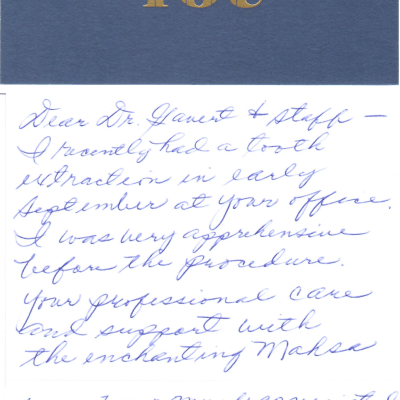 Dear Dr. Gavert & Staff —
I recently had a tooth
extraction in early
September at your office.
I was very apprehensive
before the procedure.
Your professional care
and support with
the enchanting Mahsa